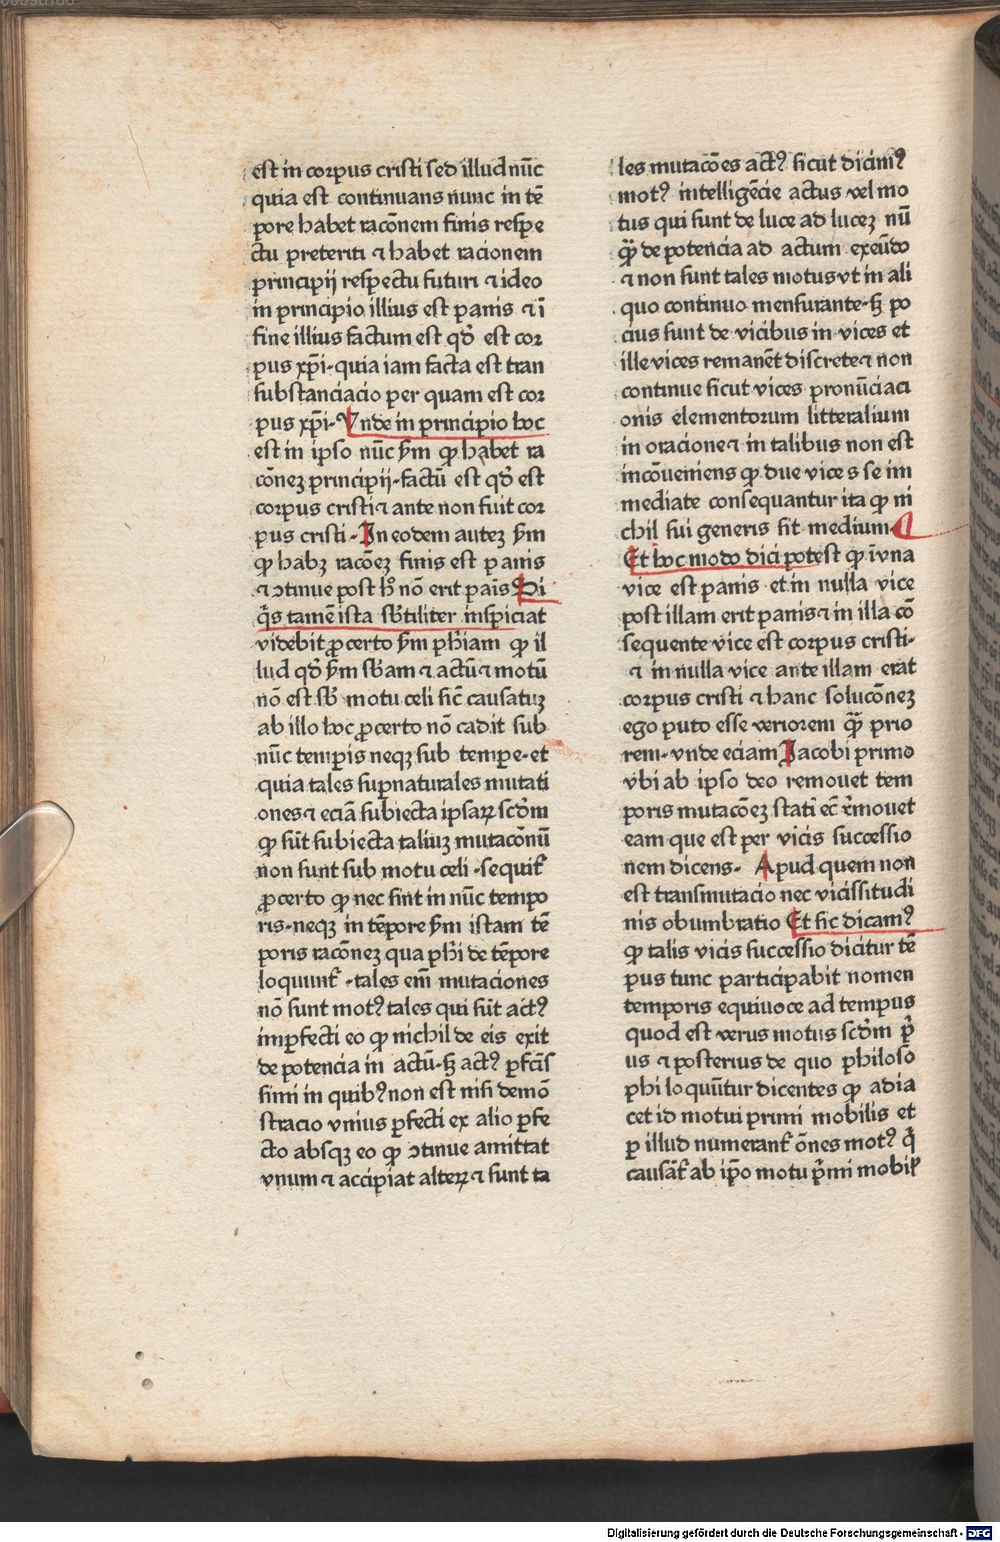 est in corpus cristi sed illud nūc
quia est continuans nunc in tē
pore habet racōnem finis respe
ctu preteriti ⁊ habet racionem
principij respectu futuri ⁊ ideo
in principio illius est panis ⁊ ī
fine illius factum est qd̄ est cor
pus xp̄i·quia iam facta est tran
substanciacio per quam est cor
pus xp̄i·Vnde in principio hoc
est in ipso nūc s̄m ꝙ habet ra
cōneꝫ principij·factū est qd̄ est
corpus cristi⁊ ante non fuit cor
pus cristi·In eodem auteꝫ s̄m
ꝙ habꝫ racōeꝫ finis est panis
⁊ ꝯtinue post h̄ nō erit paīs Si
q̄s tamē ista sb̄tiliter inspiciat
videbit ꝓcerto s̄m ph̄iam ꝙ il
lud qd̄ s̄m sb̄am ⁊ actū⁊ motū
nō est sb̄ motu celi sic̄ causatuꝫ
ab illo hoc ꝓcerto nō cadit sub
nūc temꝑis neqꝫ sub temꝑe·et
quia tales suꝑnaturales mutati
ones⁊ eciā subiecta ipsaꝝ scd̄m
ꝙ sūt subiecta taliuꝫ mutacōnū
non sunt sub motu celi·sequit᷑
ꝓcerto ꝙ nec sint in nūc tempo
ris·neqꝫ in tēpore s̄m istam tē
poris racōneꝫ qua ph̄i de tēpore
loquunt᷑·tales em̄ mutaciones
nō sunt motꝰ tales qui sūt actꝰ
imꝑfecti eo ꝙ nichil de eis exit
de potencia in actū·sꝫ actꝰ ꝑfc̄īs
simi in quibꝰ non est nisi demō
stracio vnius ꝑfecti ex alio ꝑfe
cto absqꝫ eo ꝙ ꝯtinue amittat
vnum ⁊ accipiat alteꝝ ⁊ sunt ta
les mutacōes actꝰ sicut dicimꝰ
motꝰ intelligēcie actus vel mo
tus qui sunt de luce ad luceꝫ nū
qꝫ̄ de potencia ad actum exeūdo
⁊ non sunt tales motus vt in ali
quo continuo mensurante·sꝫ po
cius sunt de vicibus in vices et
ille vices remanēt discrete⁊ non
continue sicut vices pronūciaci
onis elementorum litteralium
in oracione⁊ in talibus non est
incōueniens ꝙ due vices se im
mediate consequantur ita ꝙ ni
chil sui generis sit medium
Et hoc modo dici potest ꝙ ī vna
vice est panis et in nulla vice
post illam erit panis⁊ in illa cō
sequente vice est corpus cristi·
⁊ in nulla vice ante illam erat
corpus cristi ⁊ hanc solucōneꝫ
ego puto esse veriorem qꝫ̄ prio
rem·vnde eciam Iacobi primo
vbi ab ipso deo remouet tem
poris mutacōeꝫ stati ec̄ r̄mouet
eam que est per vicis successio
nem dicens· Apud quem non
est transmutacio nec vicissitudi
nis obumbratio Et sic dicamꝰ
ꝙ talis vicis successio dicitur tē
pus tunc participabit nomen
temporis equiuoce ad tempus
quod est verus motus scd̄m p̄
us ⁊ posterius de quo philoso
phi loquūtur dicentes ꝙ adia
cet id motui primi mobilis et
ꝑ illud numerant᷑ ōnes motꝰ q̄
causāt᷑ ab ip̄o motu p̄mi mobil᷑
Digitalisierung gefördert durch die Deutsche Forschungsgemeinschaft - DFG